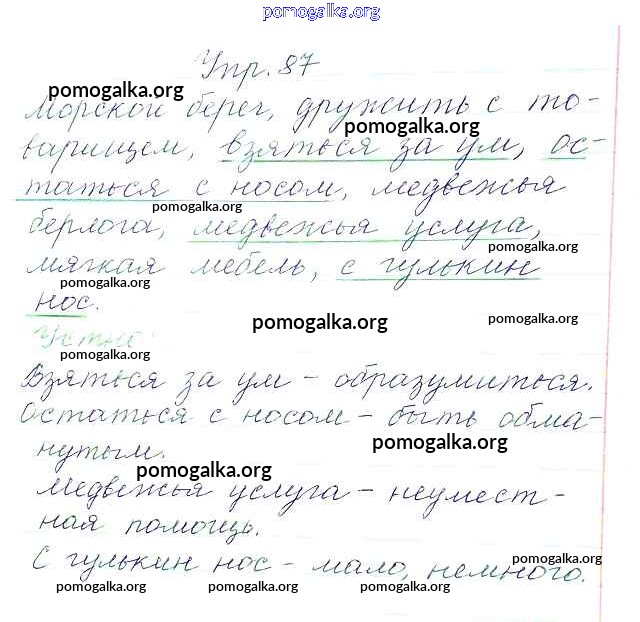 pomogalka.org
Упр. 87
pomogalka.org
морской берег, дружить с то-
pomogalka.org
варищем, взяться за ум, ос-
таться с носом, медвежья
pomogalka.org
берлога, медвежья услуга,
pomogalka.org
мягкая мебель, с гулькин
pomogalka.org
нос.
pomogalka.org pomogalka.org
Устно:
pomogalka.org
Взяться за ум – образумиться.
Остаться с носом – быть обма-
pomogalka.org
нутым.
pomogalka.org
Медвежья услуга – неумест-
ная помощь.
С гулькин нос – мало, немного.
pomogalka.org
pomogalka.org pomogalka.org pomogalka.org